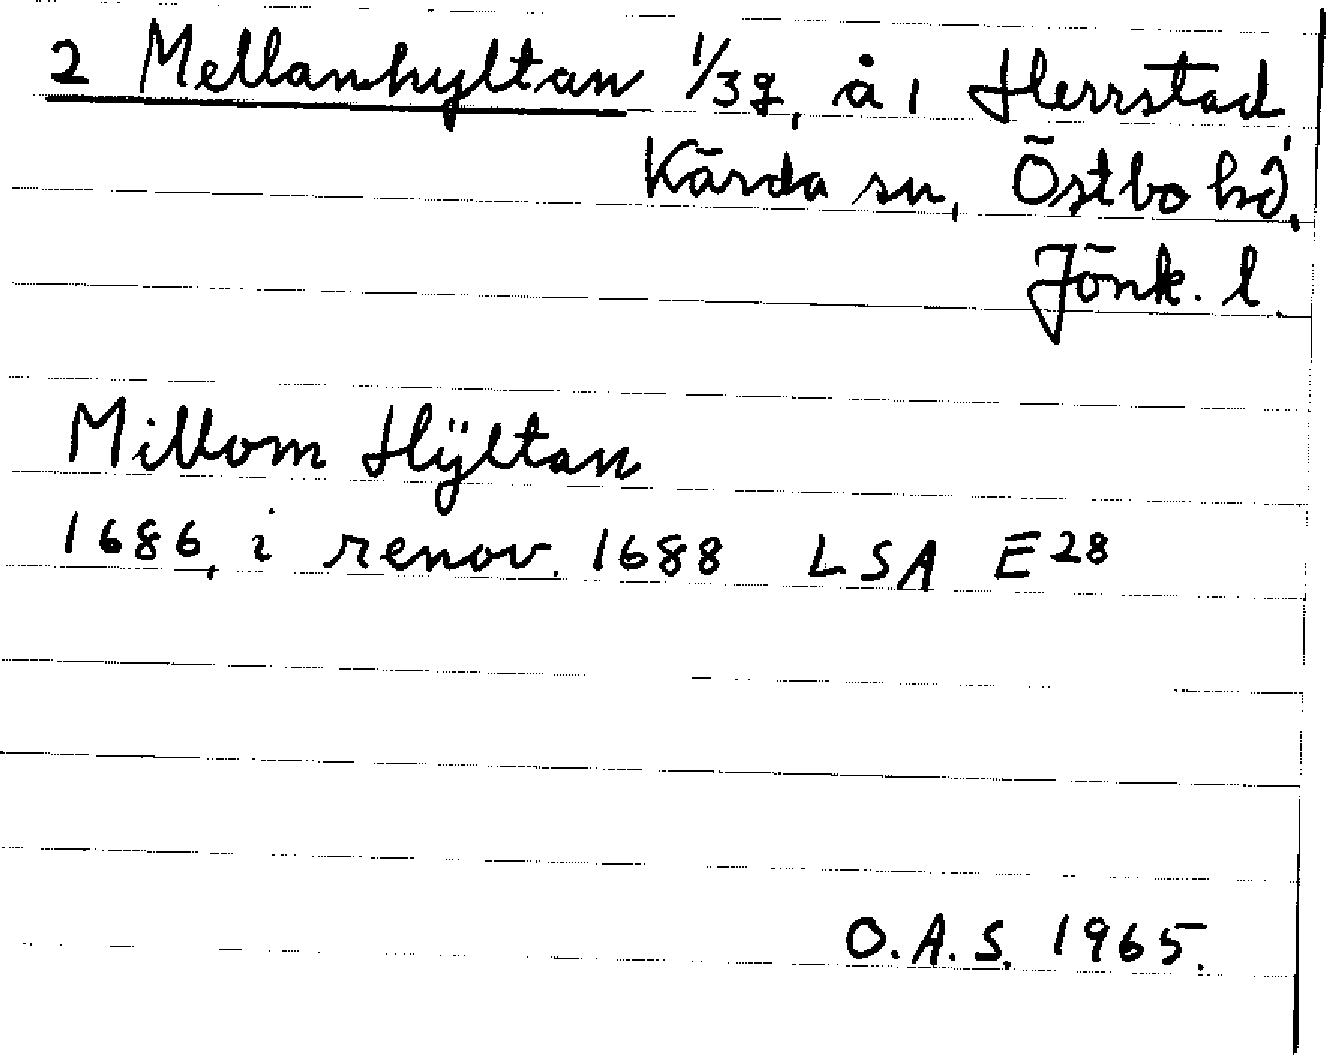 2 Mellanhyltan 1/3 g, å 1 Herrstad
Kärda sn, Östbo hd,
Jönk. l.
Millom Hÿltan
1686, i renov. 1688 LSA E28
O.A.S. 1965.